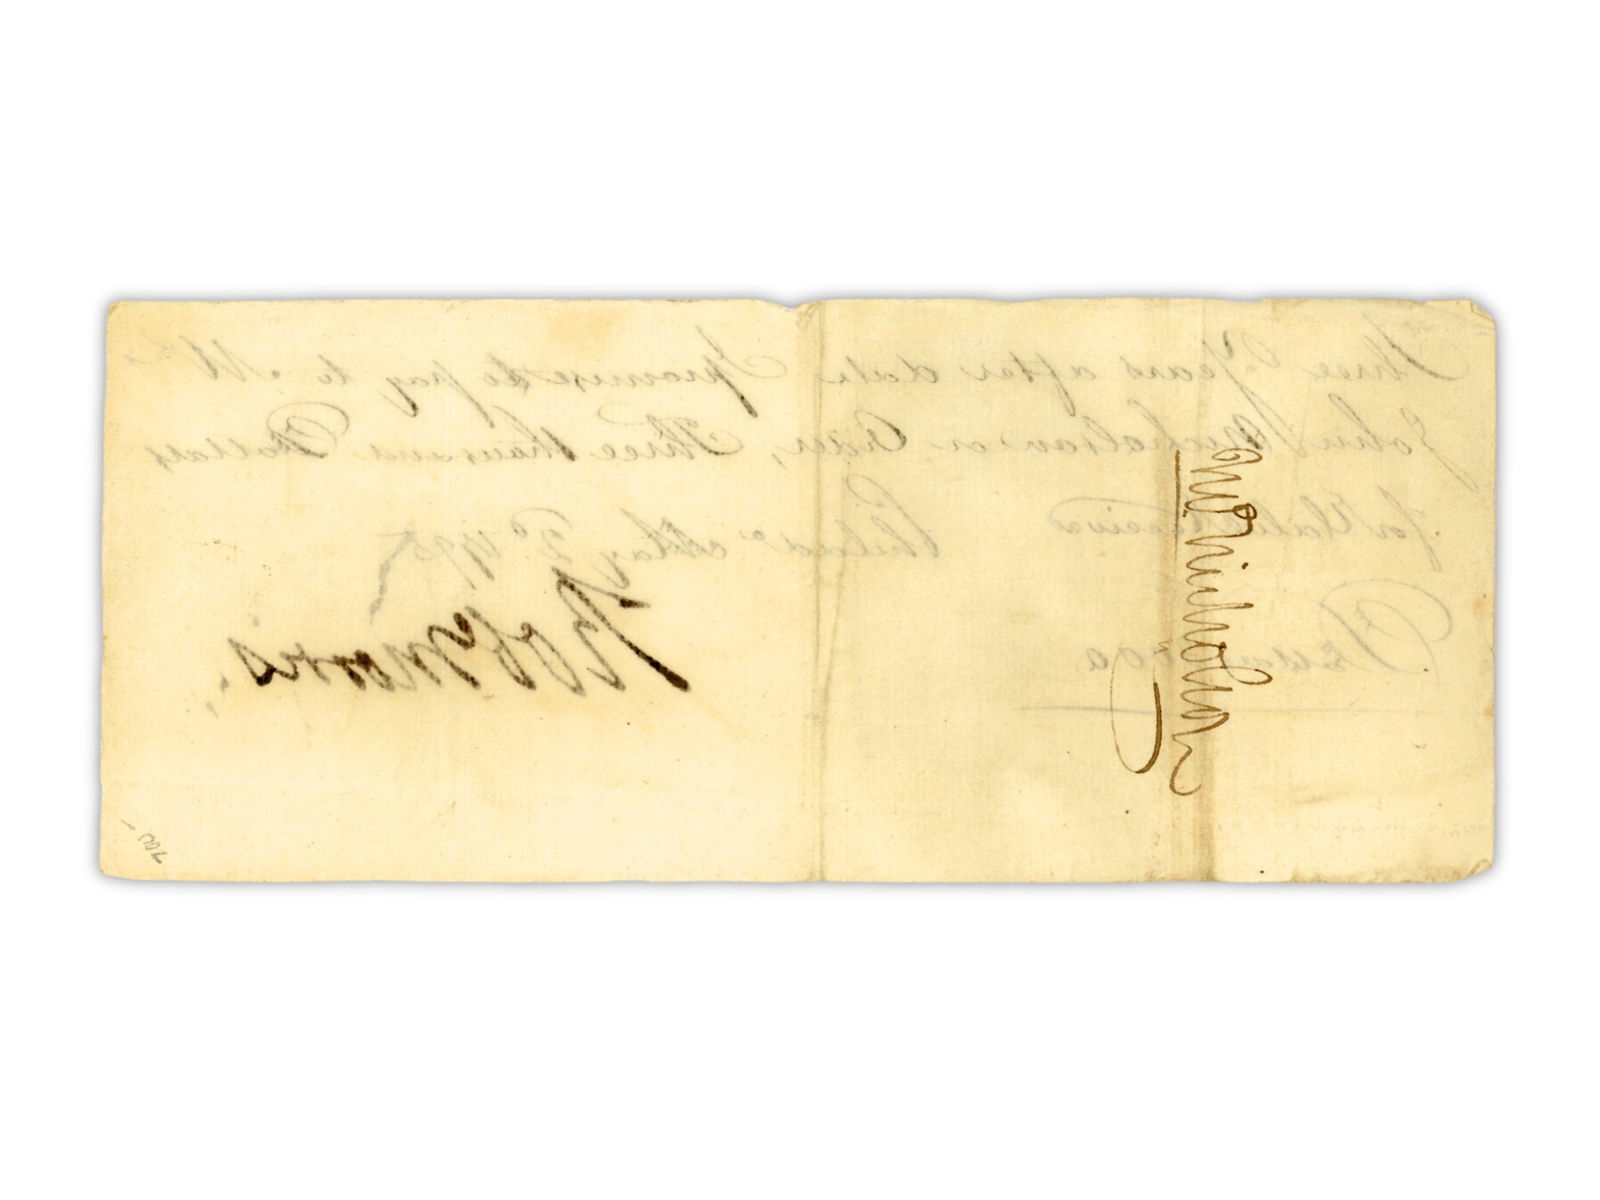 Three Years after date I promise to pay to Mr
John Nicholson or Order, Three thousand Dollars
for Value Received
Philada May 2d 1795
Robt Morris.
Jno Nicholson